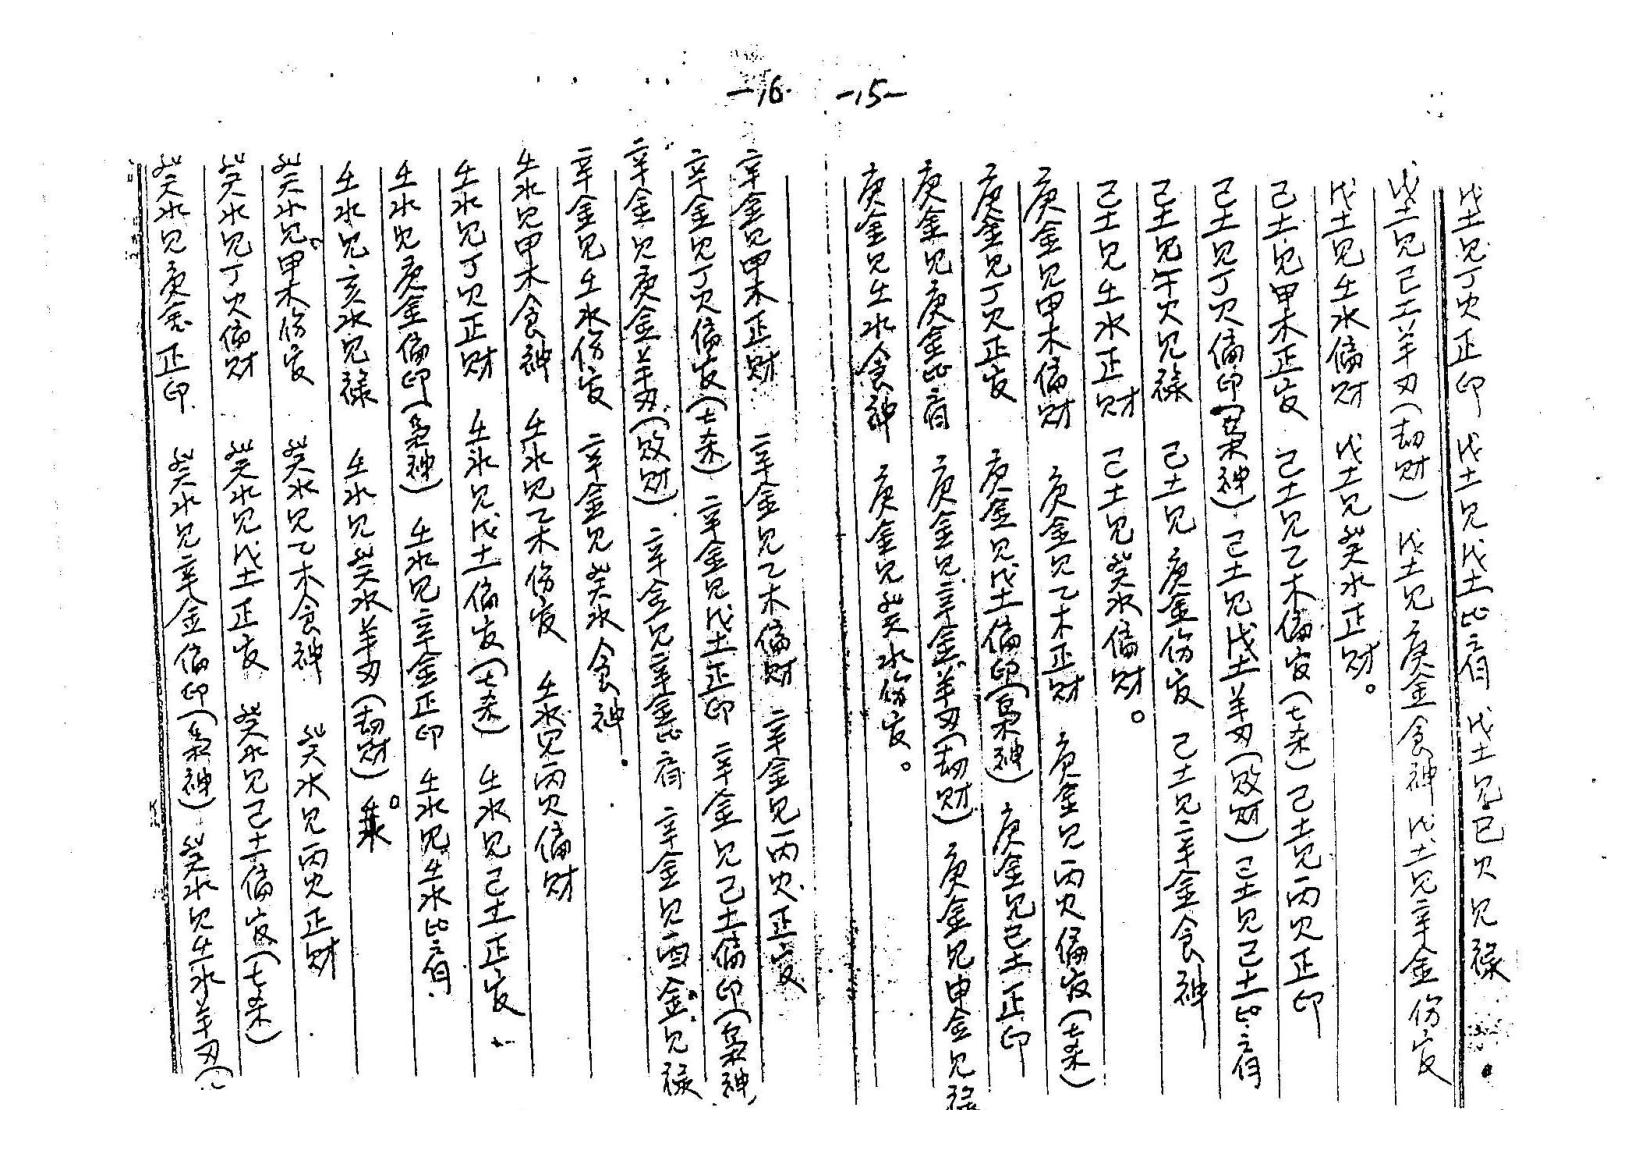 -15-
戊土见丁火正印 戊土见戊土比肩 戊土见巳火见禄
戊土见己土羊刃(劫财) 戊土见庚金食神 戊土见辛金伤官
戊土见壬水偏财 戊土见癸水正财。
己土见甲木正官 己土见乙木偏官(七杀) 己土见丙火正印
己土见丁火偏印(枭神) 己土见戊土羊刃(败财) 己土见己土比肩
己土见午火见禄 己土见庚金伤官 己土见辛金食神
己土见壬水正财 己土见癸水偏财。
庚金见甲木偏财 庚金见乙木正财 庚金见丙火偏官(七杀)
庚金见丁火正官 庚金见戊土偏印(枭神) 庚金见己土正印
庚金见庚金比肩 庚金见辛金羊刃(劫财) 庚金见申金见禄
庚金见壬水食神 庚金见癸水伤官。
-16-
辛金见甲木正财 辛金见乙木偏财 辛金见丙火正官
辛金见丁火偏官(七杀) 辛金见戊土正印 辛金见己土偏印(枭神)
辛金见庚金羊刃(败财) 辛金见辛金比肩 辛金见酉金见禄
辛金见壬水伤官 辛金见癸水食神。
壬水见甲木食神 壬水见乙木伤官 壬水见丙火偏财
壬水见丁火正财 壬水见戊土偏官(七杀) 壬水见己土正官
壬水见庚金偏印(枭神) 壬水见辛金正印 壬水见壬水比肩
壬水见亥水见禄 壬水见癸水羊刃(劫财)。
癸水见甲木伤官 癸水见乙木食神 癸水见丙火正财
癸水见丁火偏财 癸水见戊土正官 癸水见己土偏官(七杀)
癸水见庚金正印 癸水见辛金偏印(枭神) 癸水见壬水羊刃(